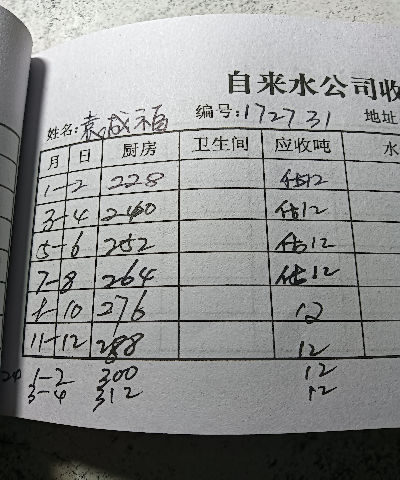 自来水公司收
姓名:袁成福 编号:172731 地址
月 日 厨房 卫生间 应收吨 水
1-2 228 估12
3-4 240 估12
5-6 252 估12
7-8 264 估12
9-10 276 12
11-12 288 12
1-2 300 12
3-4 312 12